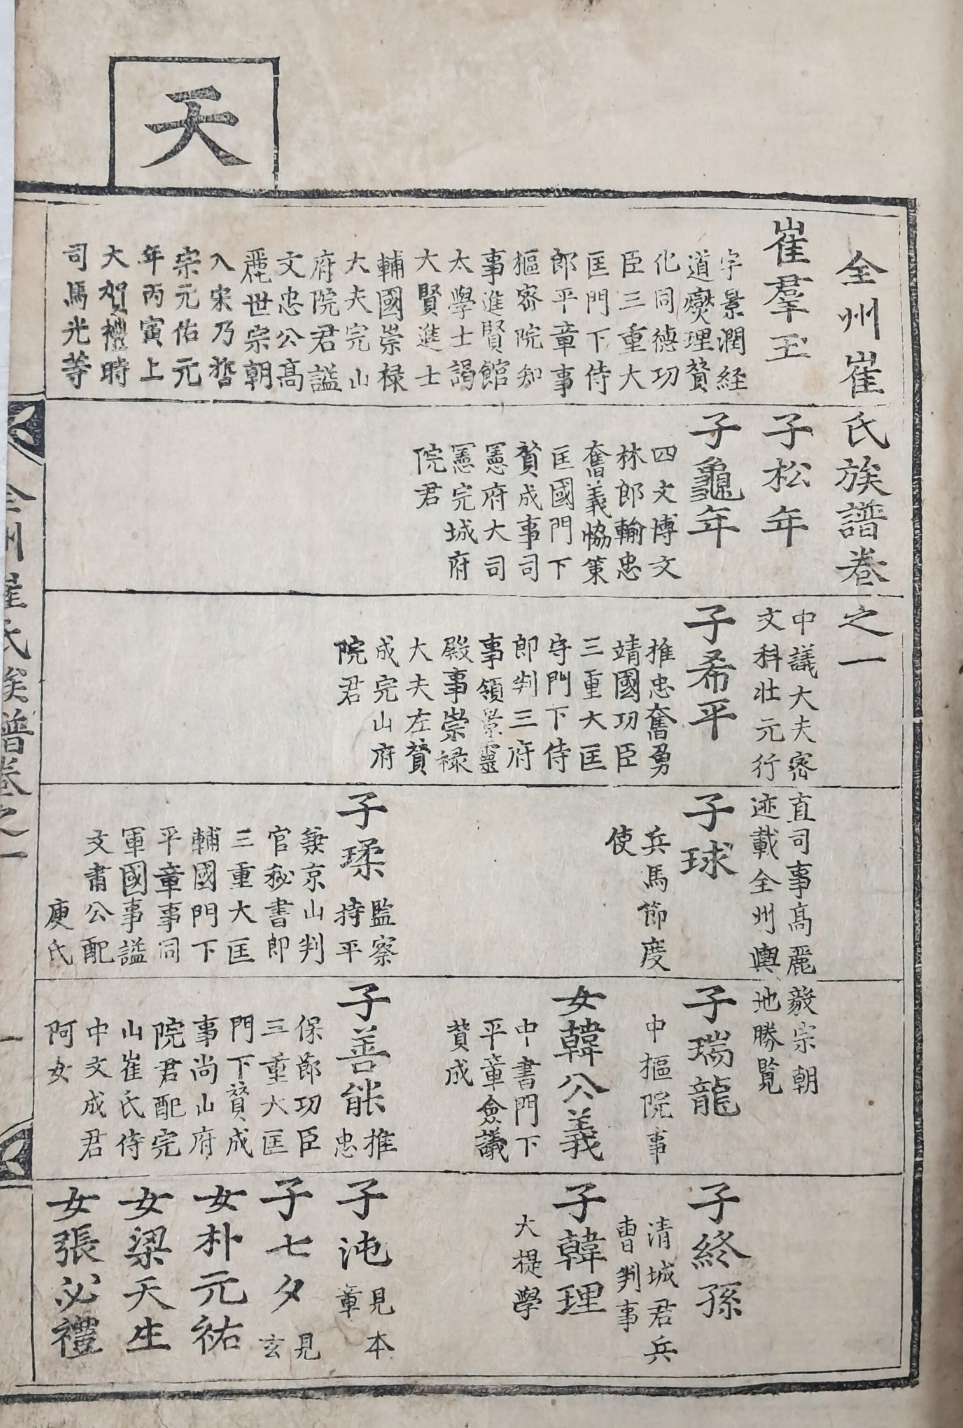 天
全州崔氏族譜卷之一
崔羣玉
字景潤経
道爕理賛
化同德功
臣三重大
匡門下侍
郎平章事
樞密院知
事進賢館
太學士謁
大賢進士
輔國崇禄
大夫完山
府院君謚
文忠公高
麗世宗朝
入宋乃哲
宗元佑元
年丙寅上
大賀禮時
司馬光等
子松年
中議大夫密直司事高麗毅宗朝
文科壮元行迹載全州輿地勝覧
子龜年
四文博文
林郎輸忠
奮義恊策
匡國門下
賛成事司
憲府大司
憲完城府
院君
子希平
推忠奮勇
靖國功臣
三重大匡
守門下侍
郎判三府
事領景靈
殿事崇禄
大夫左賛
成完山府
院君
子球
兵馬節度
使
子瑈
監察
持平
兼京山判
官秘書郎
三重大匡
輔國門下
平章事同
軍國事謚
文肅公配
庾氏
子瑞龍
中樞院事
女韓公義
中書門下
平章僉議
賛成
子善能
推
忠
保節功臣
三重大匡
門下賛成
事尚山府
院君配完
山崔氏侍
中文成君
阿女
子終孫
清城君兵
曺判事
子韓理
大提學
子沌
見本
章
子七夕
見
玄
女朴元祐
女梁天生
女張必禮
全州崔氏族譜卷之一
一